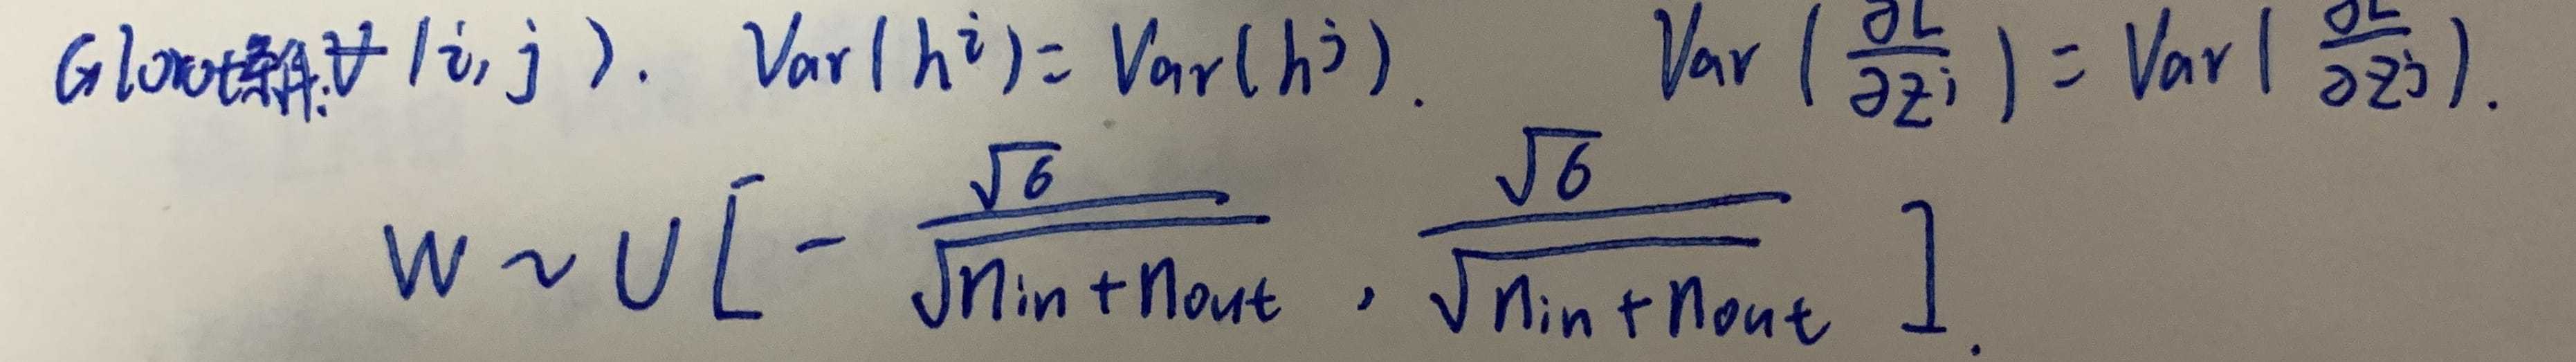 Glorot条件:∀(i, j). Var(hⁱ) = Var(hʲ). Var(∂L/∂zⁱ) = Var(∂L/∂zʲ).
W ~ U[-√6/√(nin+nout), √6/√(nin+nout)].